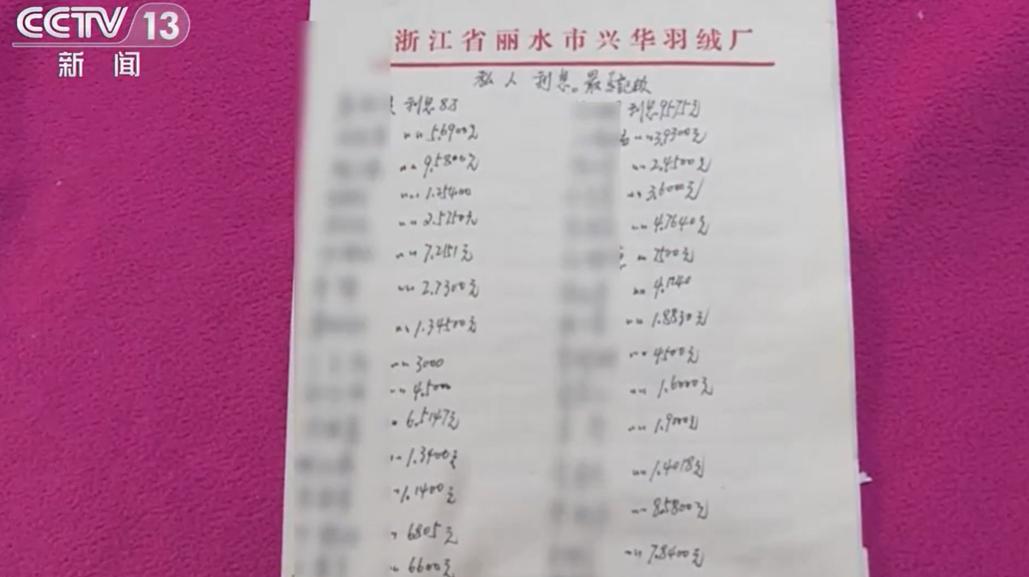 CCTV 13
新闻
浙江省丽水市兴华羽绒厂
私人 利息。最
利息83
利息9575元
〃〃5.6900元
〃〃3.9300元
〃〃9.5800元
〃〃2.4500元
〃〃1.25400
〃〃3.6000元
〃〃2.5250元
〃〃4.7640元
〃〃7.2151元
〃7500元
〃〃2.7300元
〃〃4.1040
〃〃1.34500元
〃〃1.8830元
〃〃3000
〃〃4500元
〃〃4.5000
〃〃1.6000元
〃6.5147元
〃〃1.9000元
〃〃1.3400元
〃〃1.4018元
〃1.1400元
〃〃8.5800元
〃6805元
〃〃7.8400元
〃6600元